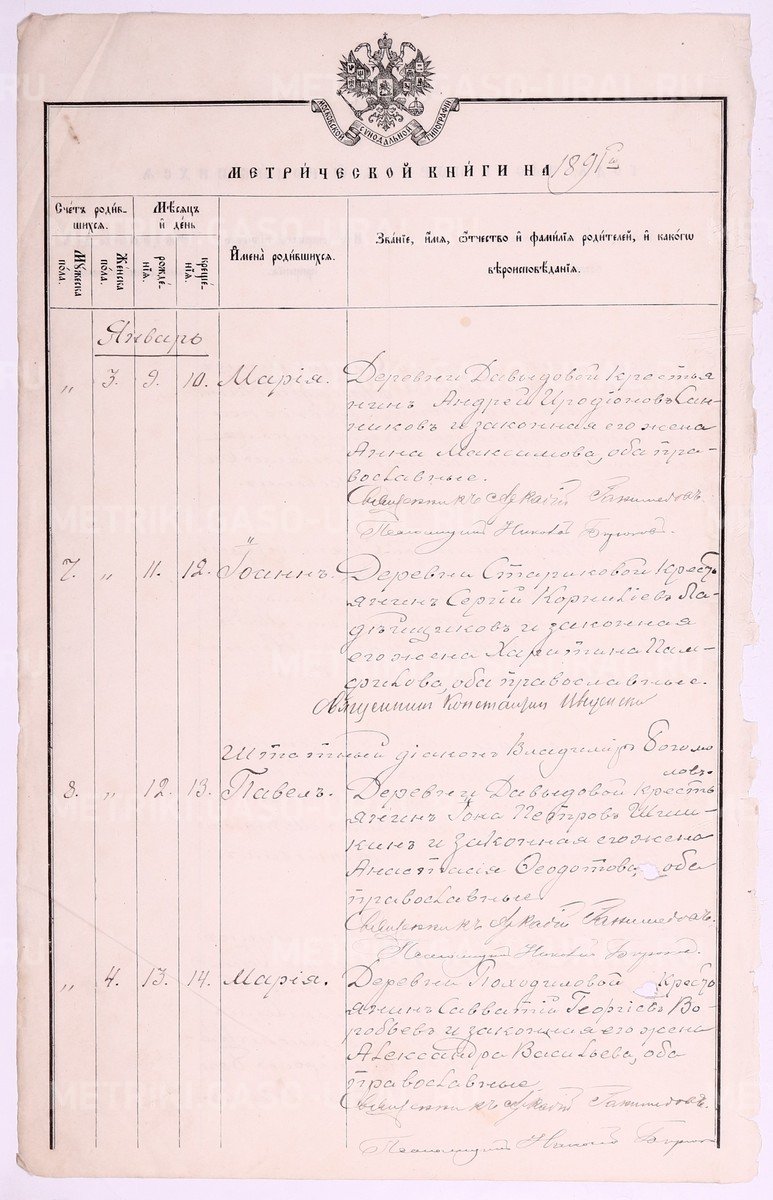 МОСКОВСКОЙ СѴНОДАЛЬНОЙ ТИПОГРАФІИ
МЕТРИ́ЧЕСКОЙ КНИ́ГИ НА 1891 Г.
Сче́тъ роди́в-
шихся.
Мѣ́сяцъ
и҆ де́нь
Му́жеска по́ла.
Же́нска по́ла.
рожде́-
нїѧ.
креще́-
нїѧ.
И҆мена̀ роди́вшихся.
Зва́нїе, и҆́мѧ, ѻ҆́тчество и҆ фами́лїѧ роди́телей, и҆ како́гѡ
вѣроисповѣ́данїѧ.
Январь
„ 3. 9. 10. Марія. Деревни Давыдовой крестья
нинъ Андрей Иродіоновъ Сан-
никовъ и законная его жена
Анна Максимова, оба пра-
вославные.
Священникъ Аркадій Ганимедовъ.
Псаломщикъ Николай
7. „ 11. 12. Іоаннъ. Деревни Стариковой кресть
янинъ Сергій Корниліевъ Ла-
дѣйщиковъ и законная
его жена Харитина Пам-
филова, оба православные.
Священникъ Константинъ
Штатный діаконъ Владиміръ Богомо
ловъ.
8. „ 12. 13. Павелъ. Деревни Давыдовой кресть
янинъ Іона Петровъ Шиш-
кинъ и законная его жена
Анастасія Ѳеодотова, оба
православные.
Священникъ Аркадій Ганимедовъ.
Псаломщикъ Николай
„ 4. 13. 14. Марія. Деревни Походиловой кресть
янинъ Савватій Георгіевъ Во-
робьевъ и законная его жена
Александра Васильева, оба
православные.
Священникъ Аркадій Ганимедовъ.
Псаломщикъ Николай